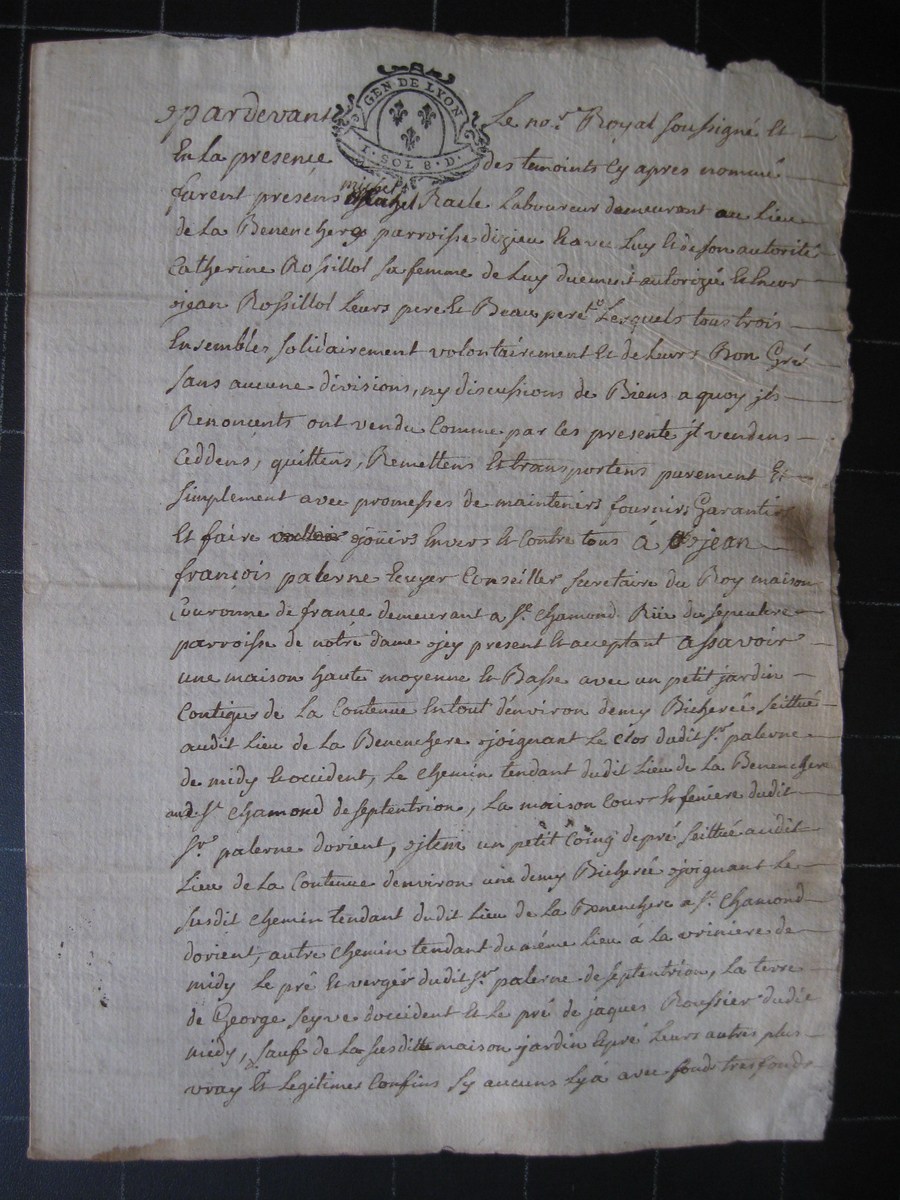 GEN DE LYON
1 · SOL 8 · D ·
pardevant Le no.r Royal soussigné Et
En La presence des temoints Cy apres nommé
furent présens michel Racle Laboureur demeurant au Lieu
de La Benenchere parroisse dizieu Et avec Luy Et de son autorité
Catherine Rossillol sa femme de Luy duement autorizée Et Encor
jean Rossillol Leurs pere Et Beau pere Lesquels tous trois
Ensembles solidairement volontairement Et de Leurs Bon Gré
sans aucune divisions, ny discussions de Biens a quoy jls
Renoncents ont vendu Comme par Les presente jl vendens
Ceddens, quittens, Remettens Et transportens purement Et
simplement avec promesses de maintenirs fournirs Garantirs
Et faire joüirs Envers Et Contre tous à jean
françois palerne Ecuyer Conseiller secretaire du Roy maison
Couronne de france demeurant a St. Chamond Rüe du sepulcre
parroisse de notre dame jcy present Et acceptant assavoir
une maison haute moyenne Et Basse avec un petit jardin
Contigu de La Contenue En tout d'environ demy Bicherée scittué
audit Lieu de La Benenchere joignant Le Clos dudit Sr. palerne
de midy Et occident, Le Chemin tendant dudit Lieu de La Benenchere
a St. Chamond de septentrion, La maison Cour Et feniere dudit
Sr. palerne dorient, jtem un petit Coing de pré scittué audit
Lieu de La Contenue denviron une demy Bicherée joignant Le
susdit Chemin tendant dudit Lieu de La Benenchere a St. Chamond
dorient, autre Chemin tendant du méme Lieu à La vriniere de
midy Le pré Et verger dudit Sr. palerne de septentrion, La terre
de George seyve doccident Et Le pré de jaques Roussier dudit
midy, sauf de La susditte maison jardin Et pré Leurs autres plus
vray Et Legitimes Confins sy aucuns Ly a avec fonds tresfonds